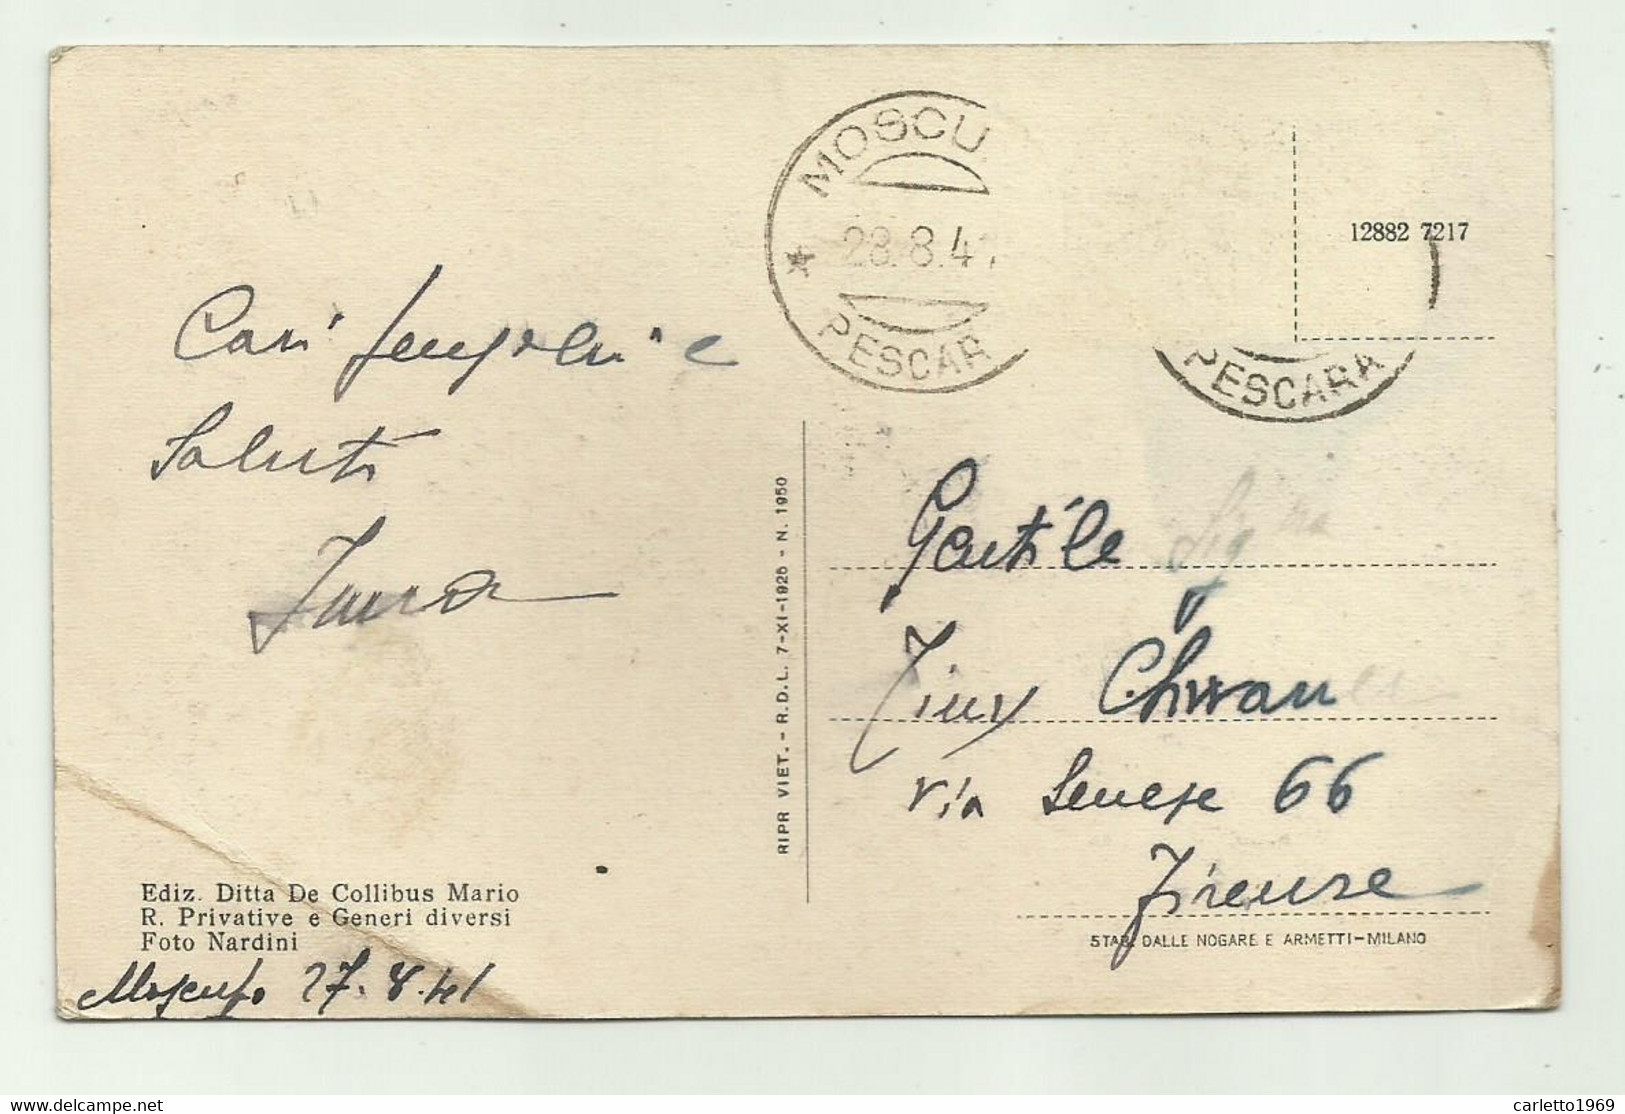 MOSCU
28.8.41
PESCAR
PESCARA
12882 7217
Cari e
Saluti
Gentile Sig.na
via Senese 66
Firenze
RIPR VIET. - R.D.L. 7-XI-1925 - N. 1950
Ediz. Ditta De Collibus Mario
R. Privative e Generi diversi
Foto Nardini
Moscufo 27.8.41
STAB. DALLE NOGARE E ARMETTI-MILANO
delcampe.net
carletto1969